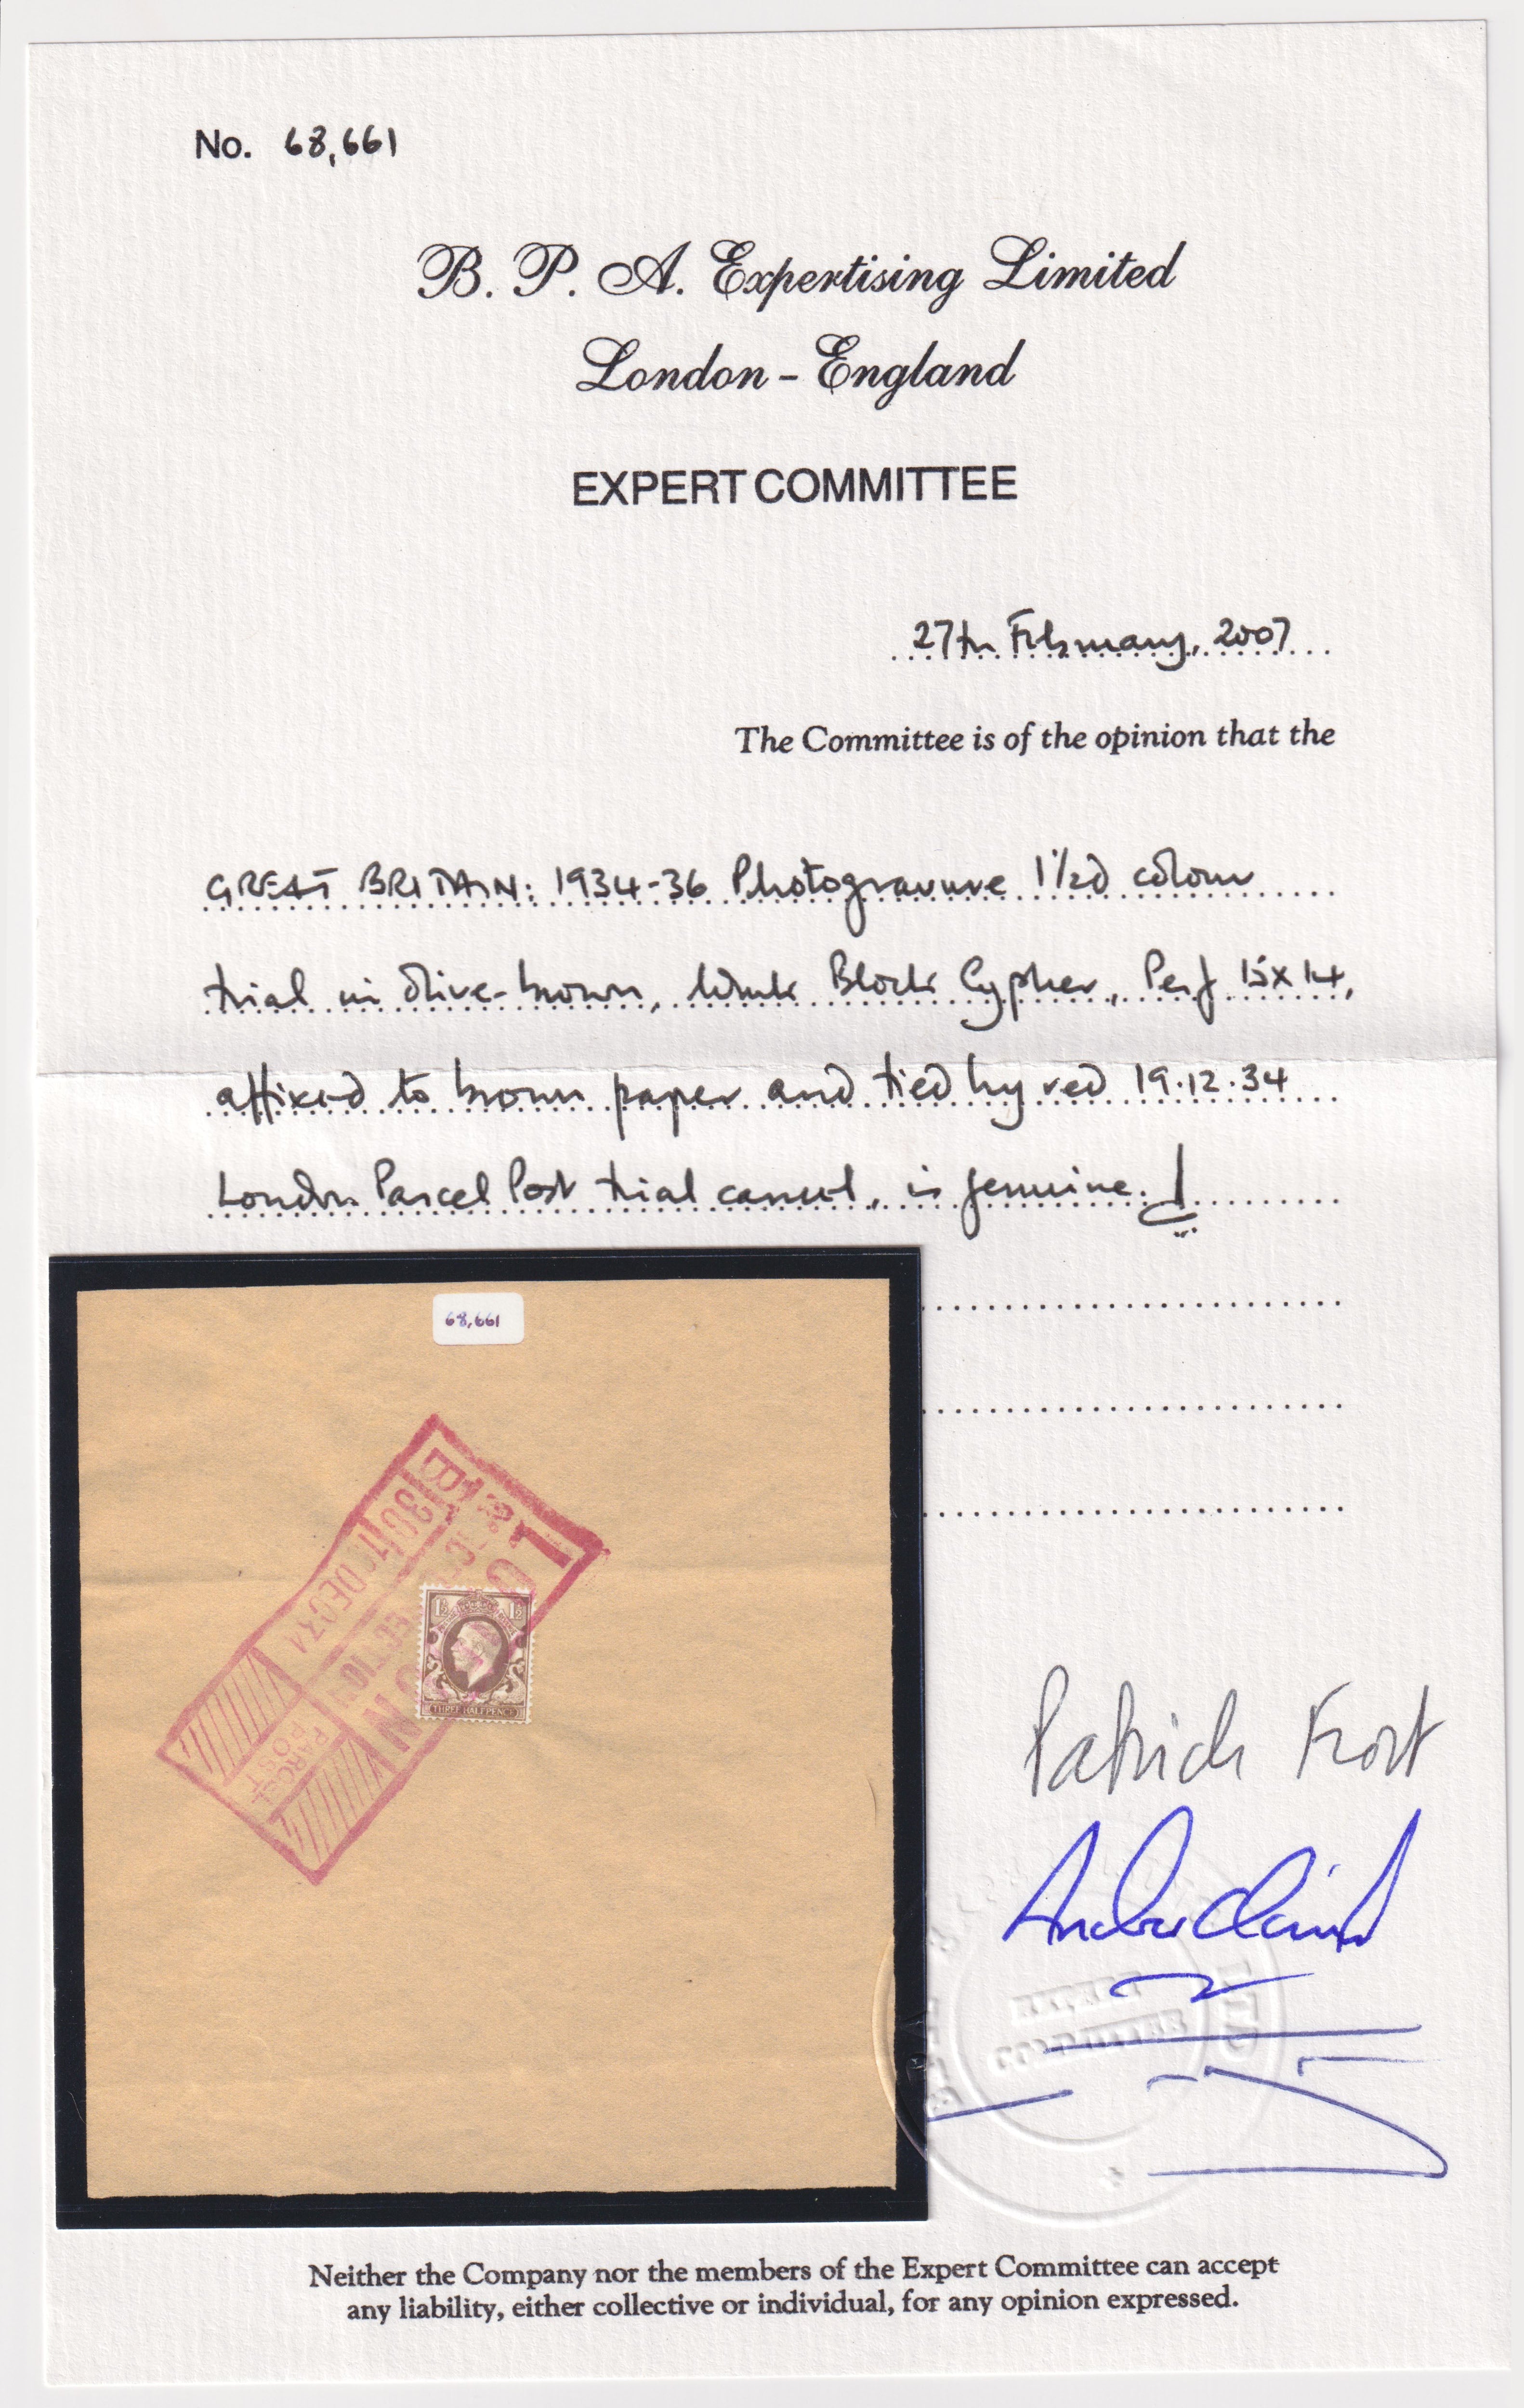 No. 68,661
B. P. A. Expertising Limited
London - England
EXPERT COMMITTEE
27th February, 2007
The Committee is of the opinion that the
GREAT BRITAIN: 1934-36 Photogravure 1½d colour
trial in olive-brown, Wmk Block Cypher, Perf 15x14,
affixed to brown paper and tied by red 19.12.34
London Parcel Post trial cancel, is genuine.
68,661
LONDON
SECTION
B 30 19 DEC 34
PARCEL
POST
1½ 1½
THREE HALFPENCE
Patrick Frost
EXPERT
COMMITTEE
Neither the Company nor the members of the Expert Committee can accept
any liability, either collective or individual, for any opinion expressed.